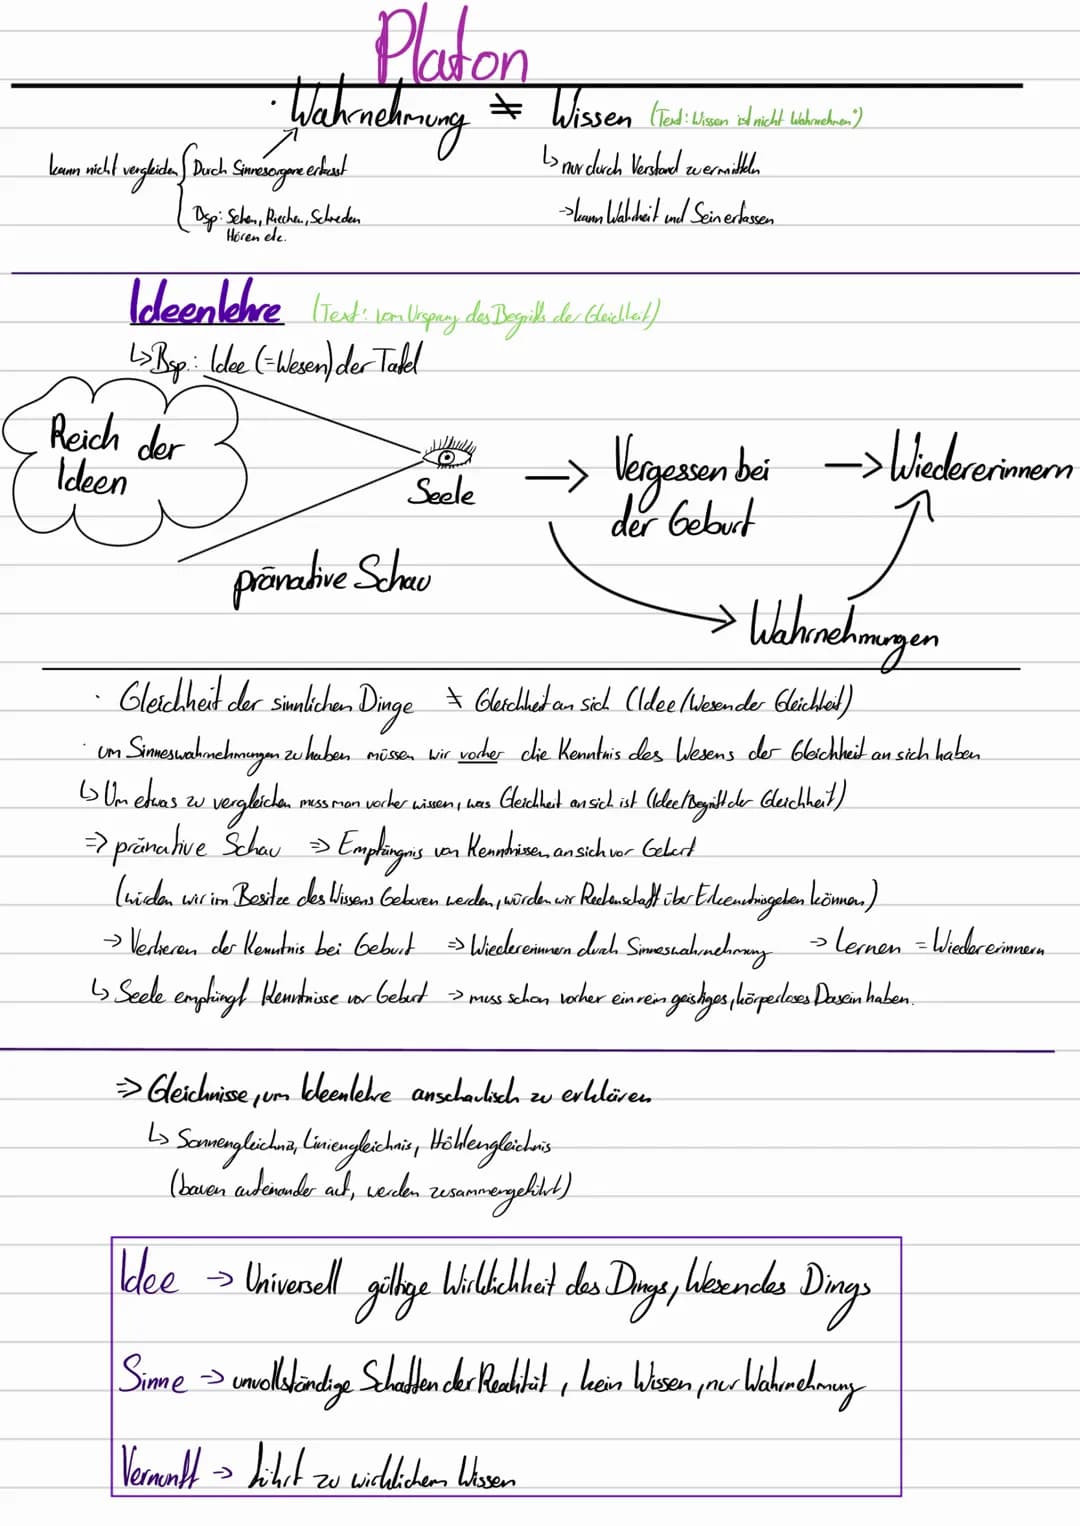 Platon
· Wahrnehmung ≠ Wissen (Text: "Wissen ist nicht Wahrnehmen")
kann nicht vergleichen { Durch Sinnesorgane erfasst
↳ nur durch Verstand zu ermitteln
Bsp: Sehen, Riechen, Schmecken
Hören etc.
→ kann Wahrheit und Sein erfassen
Ideenlehre (Text: vom Ursprung des Begriffs der Gleichheit)
↳ Bsp.: Idee (=Wesen) der Tafel
Reich der
Ideen
Seele
→ Vergessen bei
der Geburt
→ Wiedererinnern
pränative Schau
Wahrnehmungen
· Gleichheit der sinnlichen Dinge ≠ Gleichheit an sich (Idee/Wesen der Gleichheit)
· um Sinneswahrnehmungen zu haben müssen wir vorher die Kenntnis des Wesens der Gleichheit an sich haben
↳ Um etwas zu vergleichen muss man vorher wissen, was Gleichheit an sich ist (Idee/Begriff der Gleichheit)
⇒ pränative Schau ⇒ Empfängnis von Kenntnissen an sich vor Geburt
(würden wir im Besitze des Wissens Geboren werden, würden wir Rechenschaft über Erkenntnis geben können)
→ Verlieren der Kenntnis bei Geburt ⇒ Wiedererinnern durch Sinneswahrnehmung → Lernen = Wiedererinnern
↳ Seele empfängt Kenntnisse vor Geburt → muss schon vorher ein rein geistiges, körperloses Dasein haben.
⇒ Gleichnisse, um Ideenlehre anschaulisch zu erklären
↳ Sonnengleichnis, Liniengleichnis, Höhlengleichnis
(bauen aufeinander auf, werden zusammengeführt)
Idee → Universell gültige Wirklichkeit des Dings, Wesen des Dings
Sinne → unvollständige Schatten der Realität, kein Wissen, nur Wahrnehmung
Vernunft → führt zu wirklichem Wissen